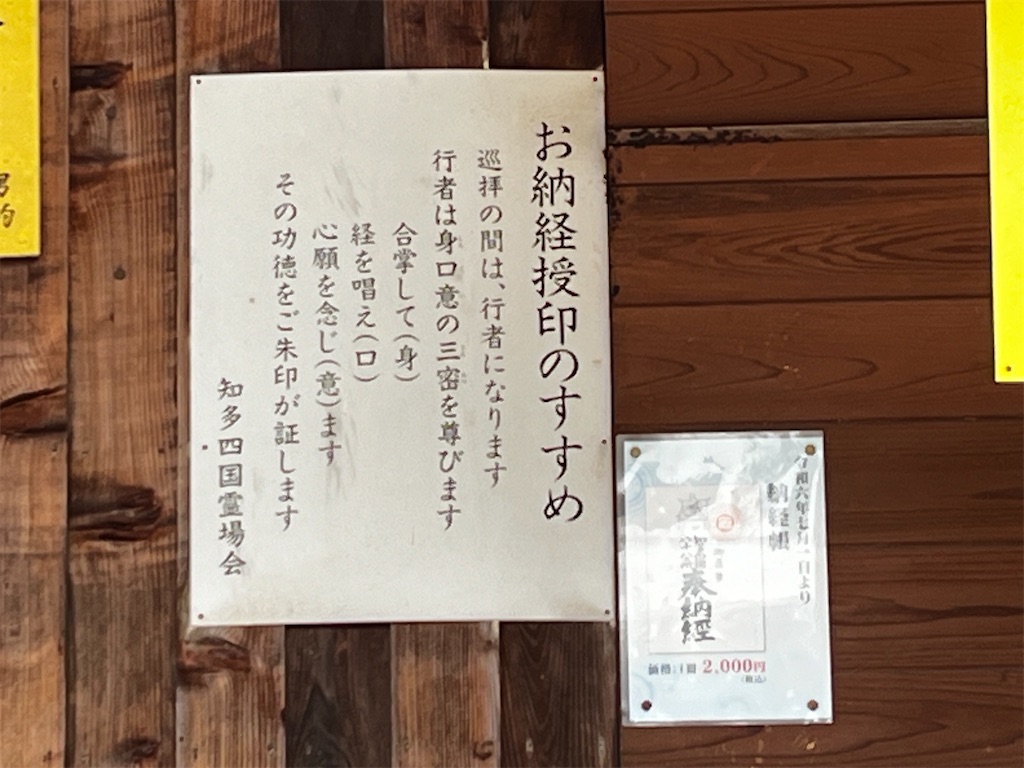 お納経授印のすすめ
巡拝の間は、行者になります
行者は身口意の三密を尊びます
合掌して(身)
経を唱え(口)
心願を念じ(意)ます
その功徳をご朱印が証します
知多四国霊場会
令和六年七月一日より
納経帳
奉納經
価格:1冊 2,000円
(税込)